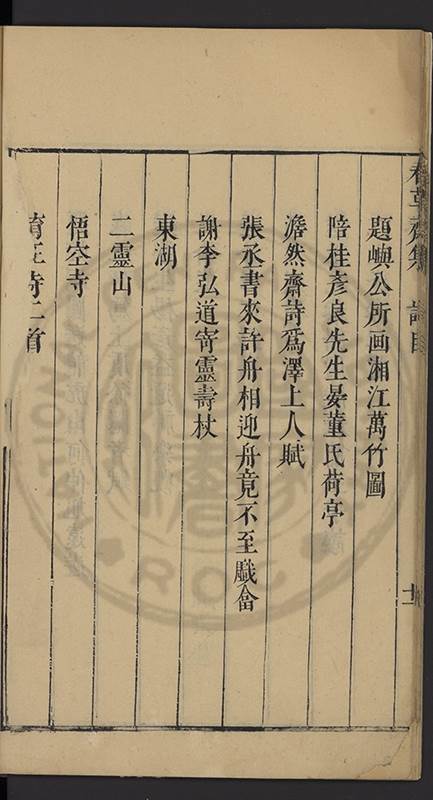 春草齋集 詩目 十一
題嶼公所画湘江萬竹圖
陪桂彦良先生晏董氏荷亭
澹然齋詩爲澤上人賦
張丞書來許舟相迎舟竟不至戱畣
謝李弘道寄靈壽杖
東湖
二靈山
悟空寺
育王寺二首